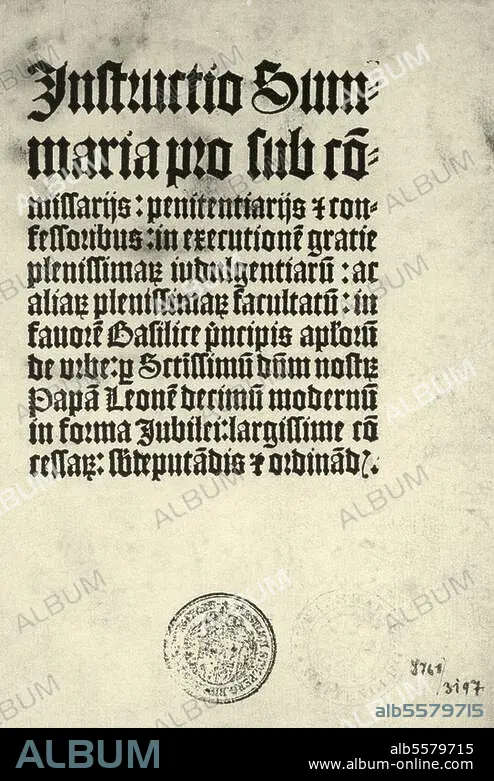 Instructio Sum-
maria pro sub cō-
missarijs: penitentiarijs ⁊ con-
fessoribus: in executionē gratie
plenissimaꝝ indulgentiarū: ac
aliaꝝ plenissimaꝝ facultatū: in
fauorē Basilice p̄ncipis apl'orū
de vrbe: ꝑ Sctissimū dn̄m nostꝝ
Papā Leonē decimū modernū
in forma Jubilei: largissime cō
cessaꝝ: sb̄deputādis ⁊ ordinād̛.
3197
alb5579715
ALBUM
alb5579715
www.album-online.com